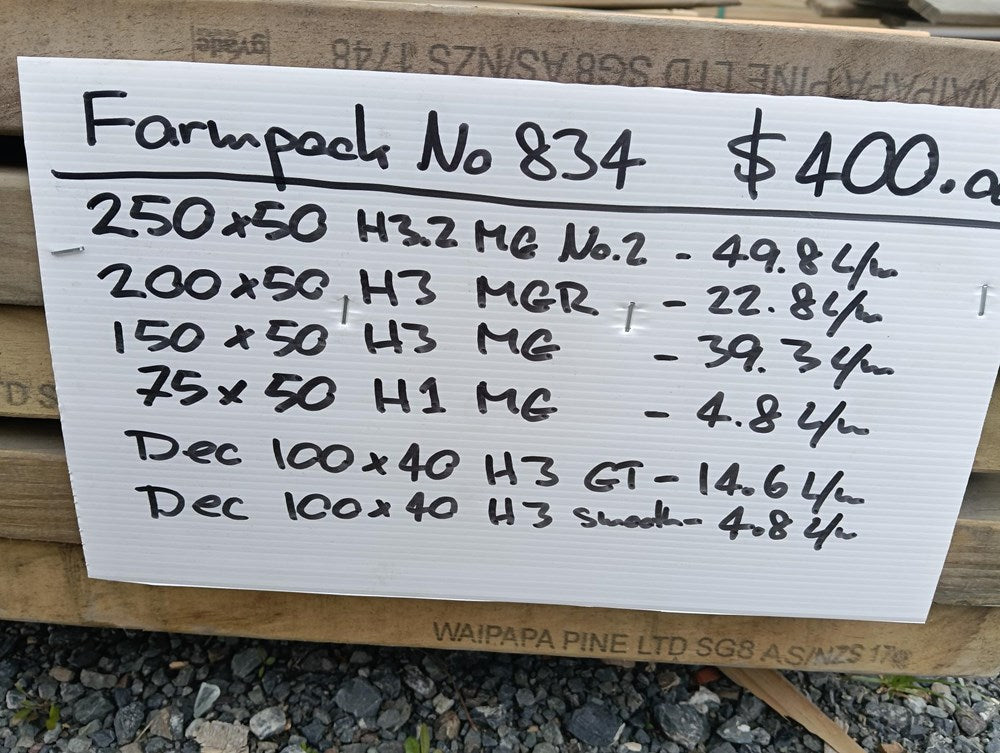 WAIPAPA PINE LTD SG8 AS/NZS 1748
grade
Farmpack No 834 $400.0
250x50 H3.2 MG No.2 - 49.8 L/m
200x50 H3 MGR - 22.8 L/m
150 x 50 H3 MG - 39.3 L/m
75x50 H1 MG - 4.8 L/m
Dec 100x40 H3 GT - 14.6 L/m
Dec 100x40 H3 smooth - 4.8 L/m
TD S
WAIPAPA PINE LTD SG8 AS/NZS 17